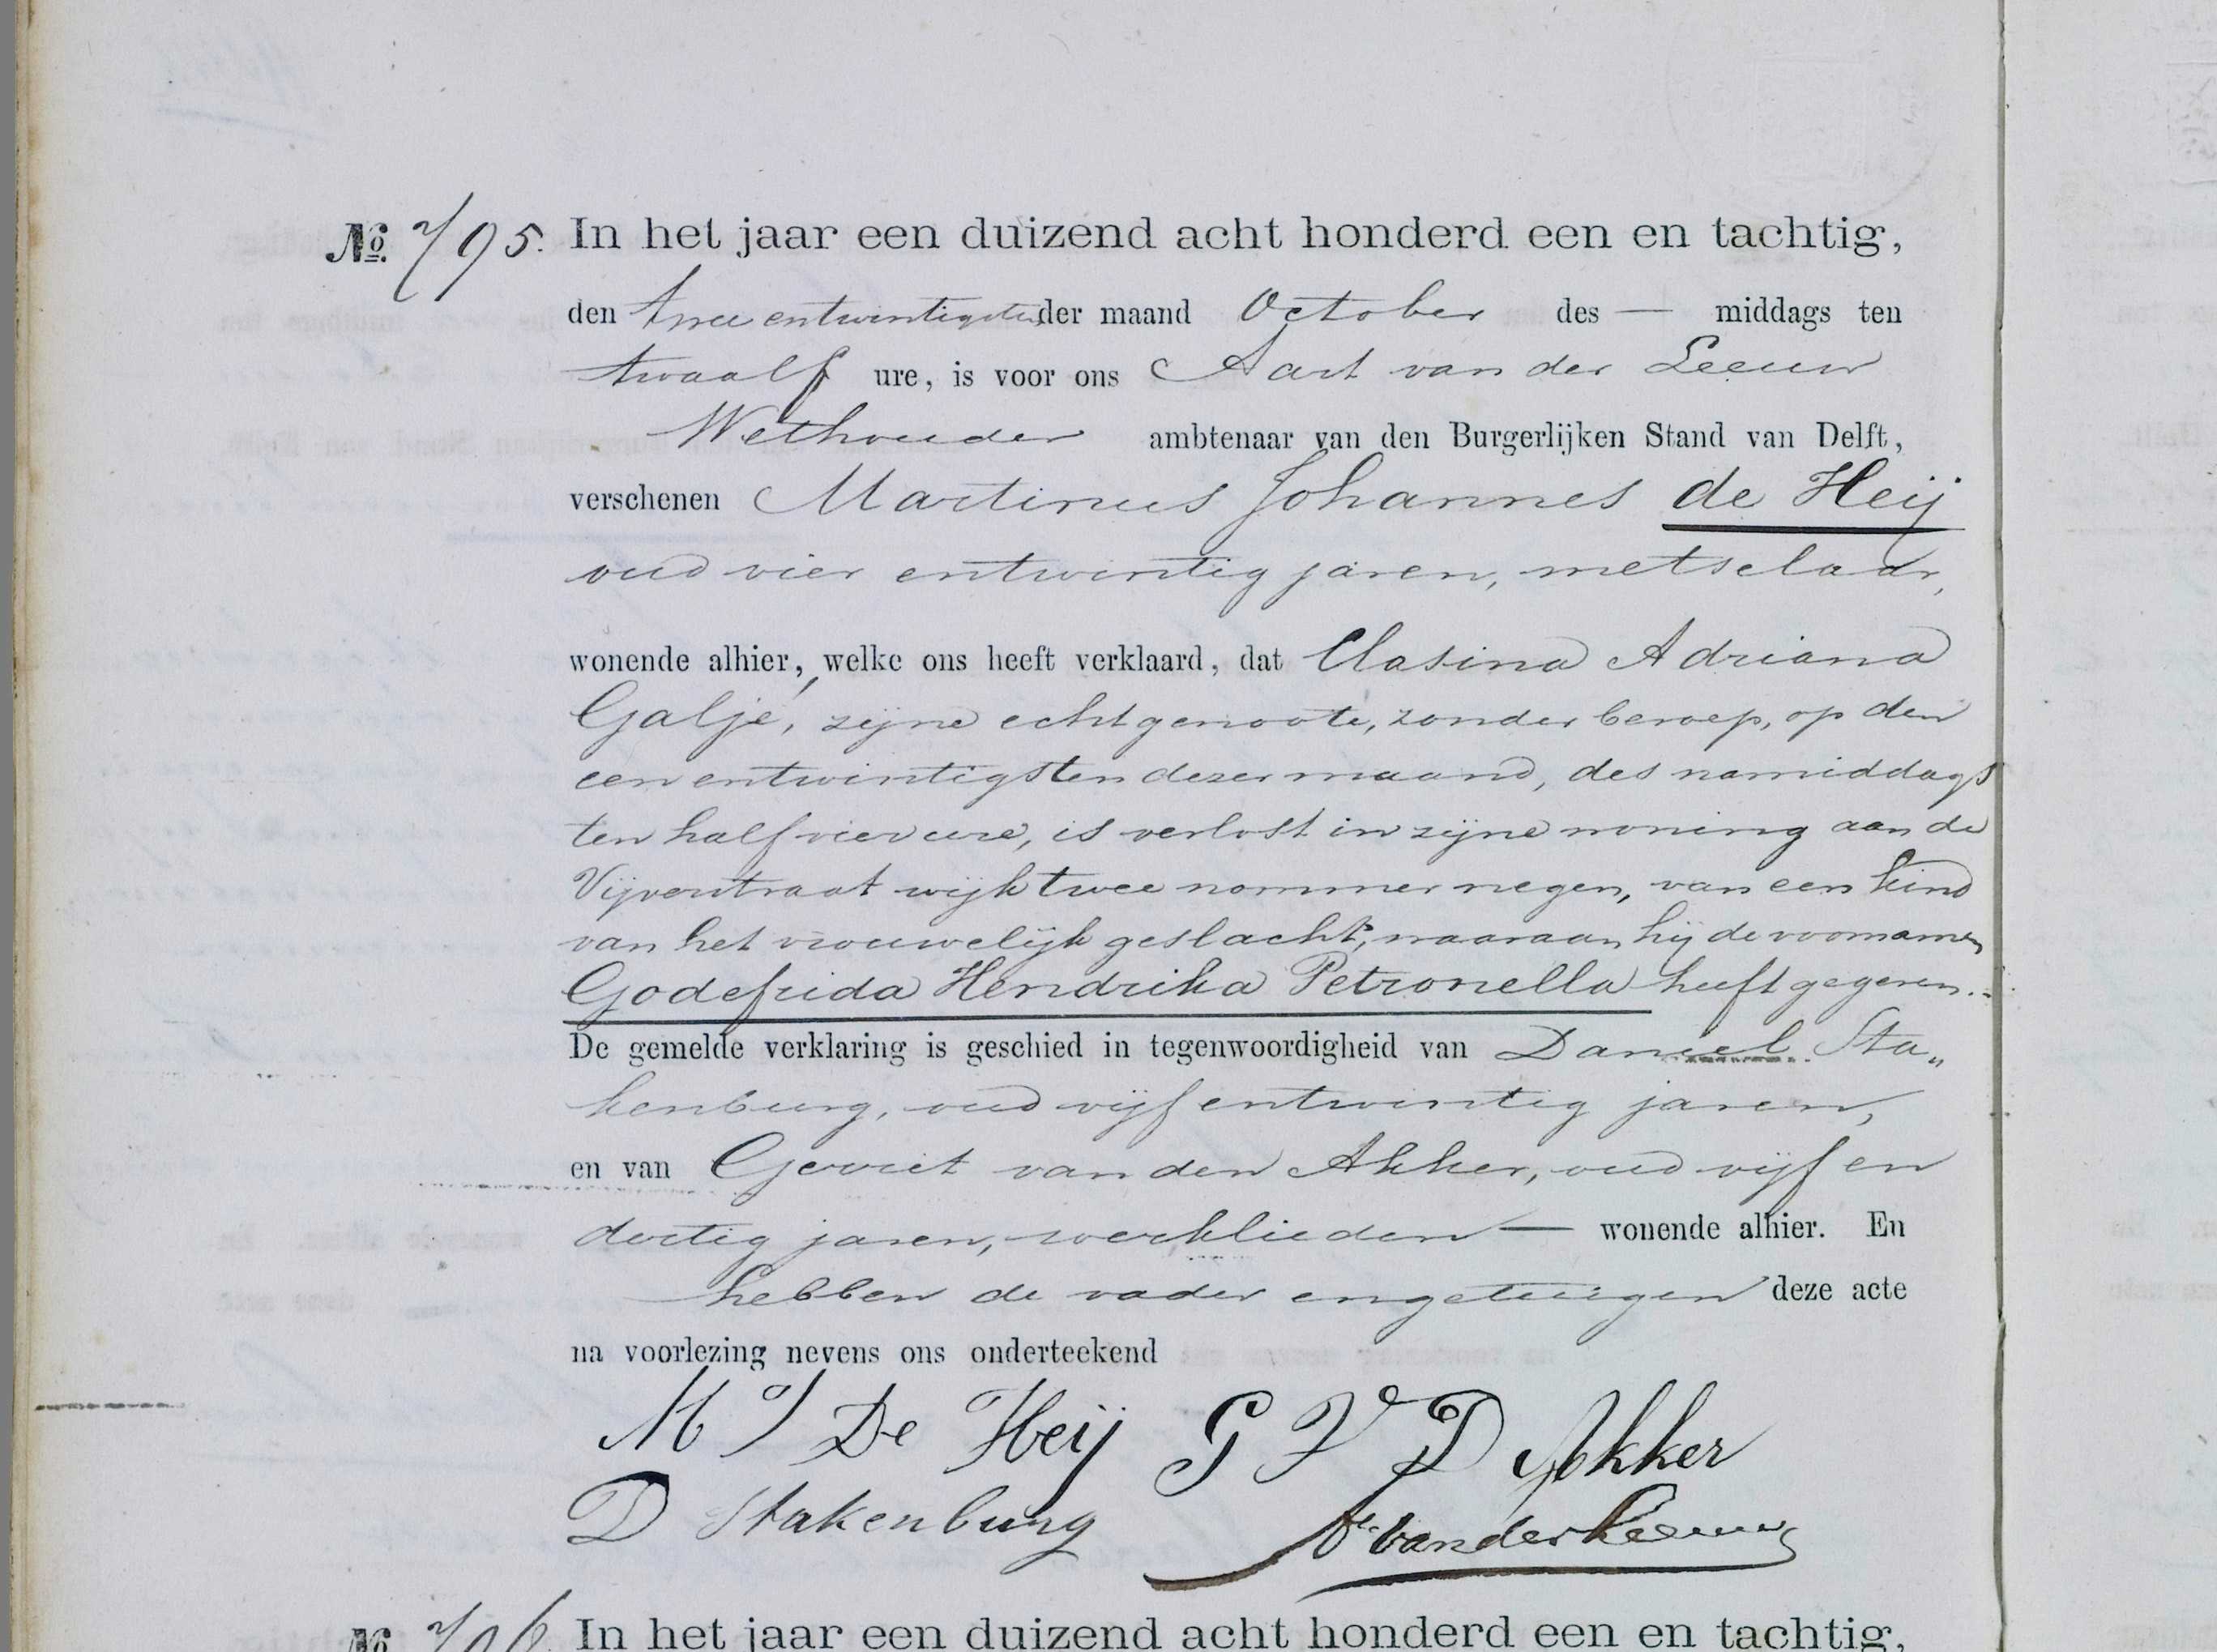 No. 795. In het jaar een duizend acht honderd een en tachtig,
den twee entwintigsten der maand October des — middags ten
twaalf ure, is voor ons Aart van der Leeuw
Wethouder ambtenaar van den Burgerlijken Stand van Delft,
verschenen Martinus Johannes de Heij
oud vier entwintig jaren, metselaar,
wonende alhier, welke ons heeft verklaard, dat Clasina Adriana
Galjé, zijne echtgenoote, zonder beroep, op den
een entwintigsten dezer maand, des namiddags
ten half vier ure, is verlost in zijne woning aan de
Vijverstraat wijk twee nommer negen, van een kind
van het vrouwelijk geslacht, waaraan hij de voornamen
Godefrida Hendrika Petronella heeft gegeven.
De gemelde verklaring is geschied in tegenwoordigheid van Daniel Sta„
kenburg, oud vijf entwintig jaren,
en van Gerriet van den Akker, oud vijf en
dertig jaren, werklieden — wonende alhier. En
hebben de vader en getuigen deze acte
na voorlezing nevens ons onderteekend
M J De Heij G V D Akker
D Stakenburg A vander Leeuw
No. 796. In het jaar een duizend acht honderd een en tachtig,